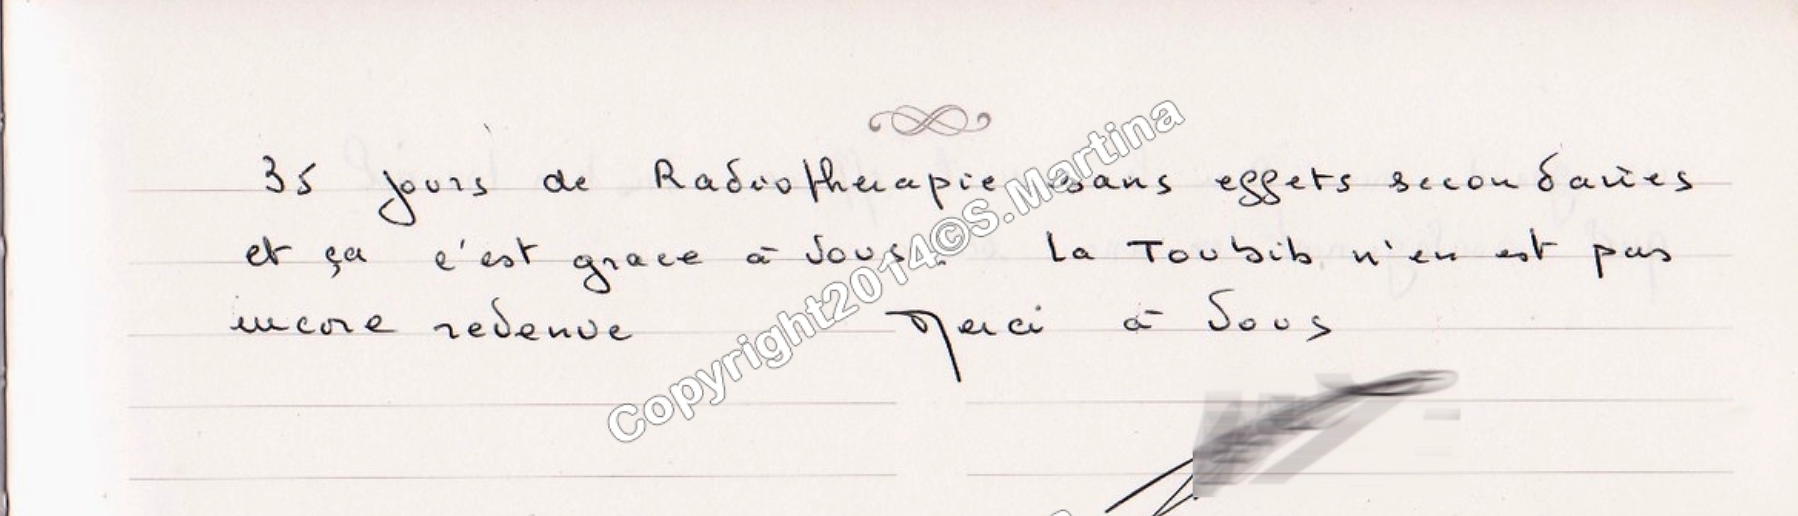 35 jours de Radiotherapie sans effets secondaires
et ça c'est grace à vous. La Toubib n'en est pas
encore revenue Merci à Vous
Copyright2014©S.Martina